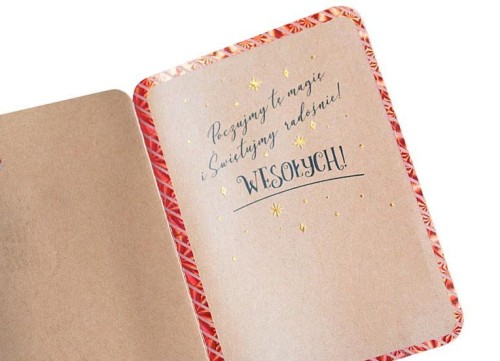 Poczujmy tę magię
i Świętujmy radośnie!
WESOŁYCH!